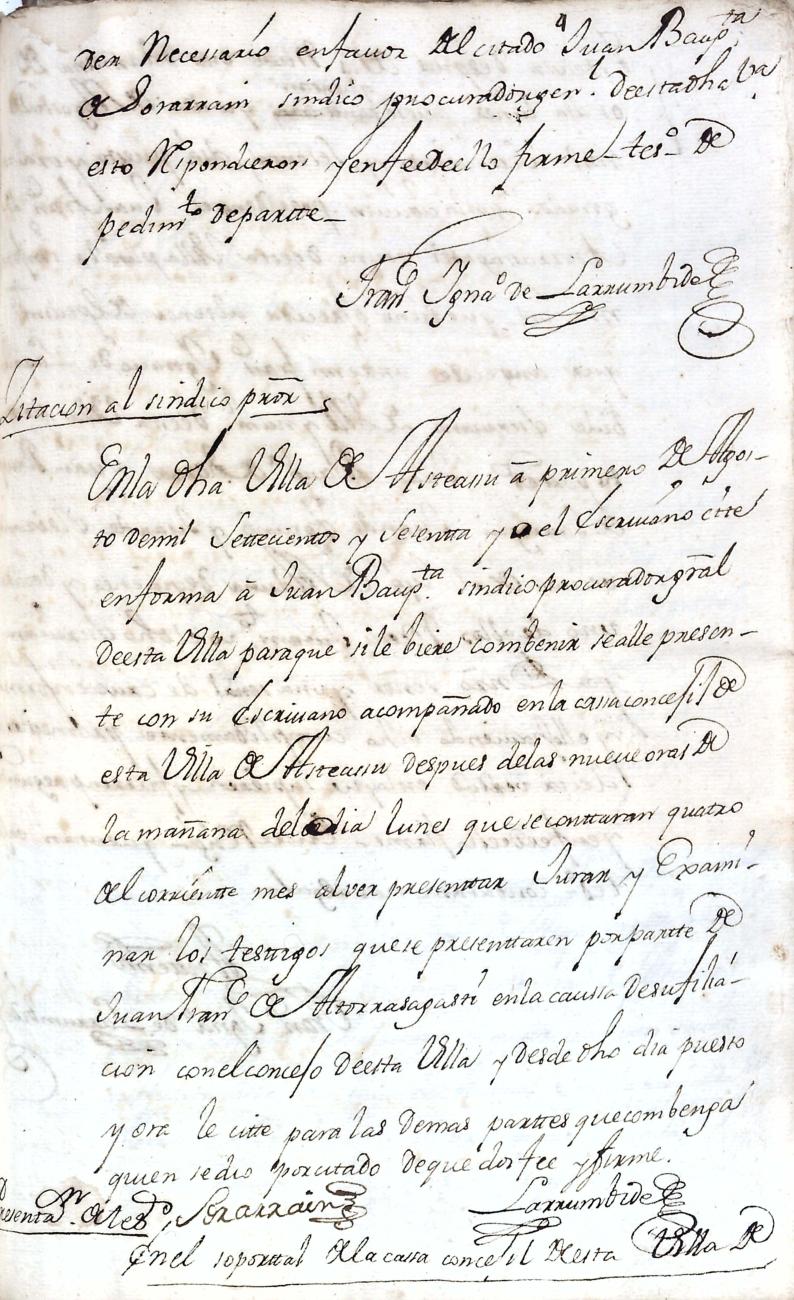 der Necessario enfavor del citado Juan Bapta
de Sorarrain sindico procuradorgenl. Deestadha Va
esto Rspondieron yenfeedeello firme tesº De
pedimto departte
Franco Ignaº de Larrumbide
Zitacion al sindico pror
Enla dha Villa de Asteassu â primero De Agos-
to demil Settecientos y Sesentta y o el Escrivano citte
enforma â Juan Baupta. sindicoprocuradorgral
Deesta Villa paraque sile biere combenir sealle presen-
te con su Escrivano acompañado enla cassaconcesil de
esta Villa de Asteassu despues delas nueveoras De
la mañana del dia lunes que seconttaran quatro
delcorriente mes alver presenttar Jurar y Exami-
nar los testtigos quese presenttaren porpartte De
Juan Franco de Atorrasagasti enla caussa Desufilia-
cion conelconcejo Deestta Villa y Desde dho dia puesto
y ora le citte para las Demas parttes quecombenga
quien sedio porcitado Deque doifee yfirme.
Sorarrain Larrumbide
Presentan. de tesº
Enel soporttal dela cassa concegil Deesta Villa De